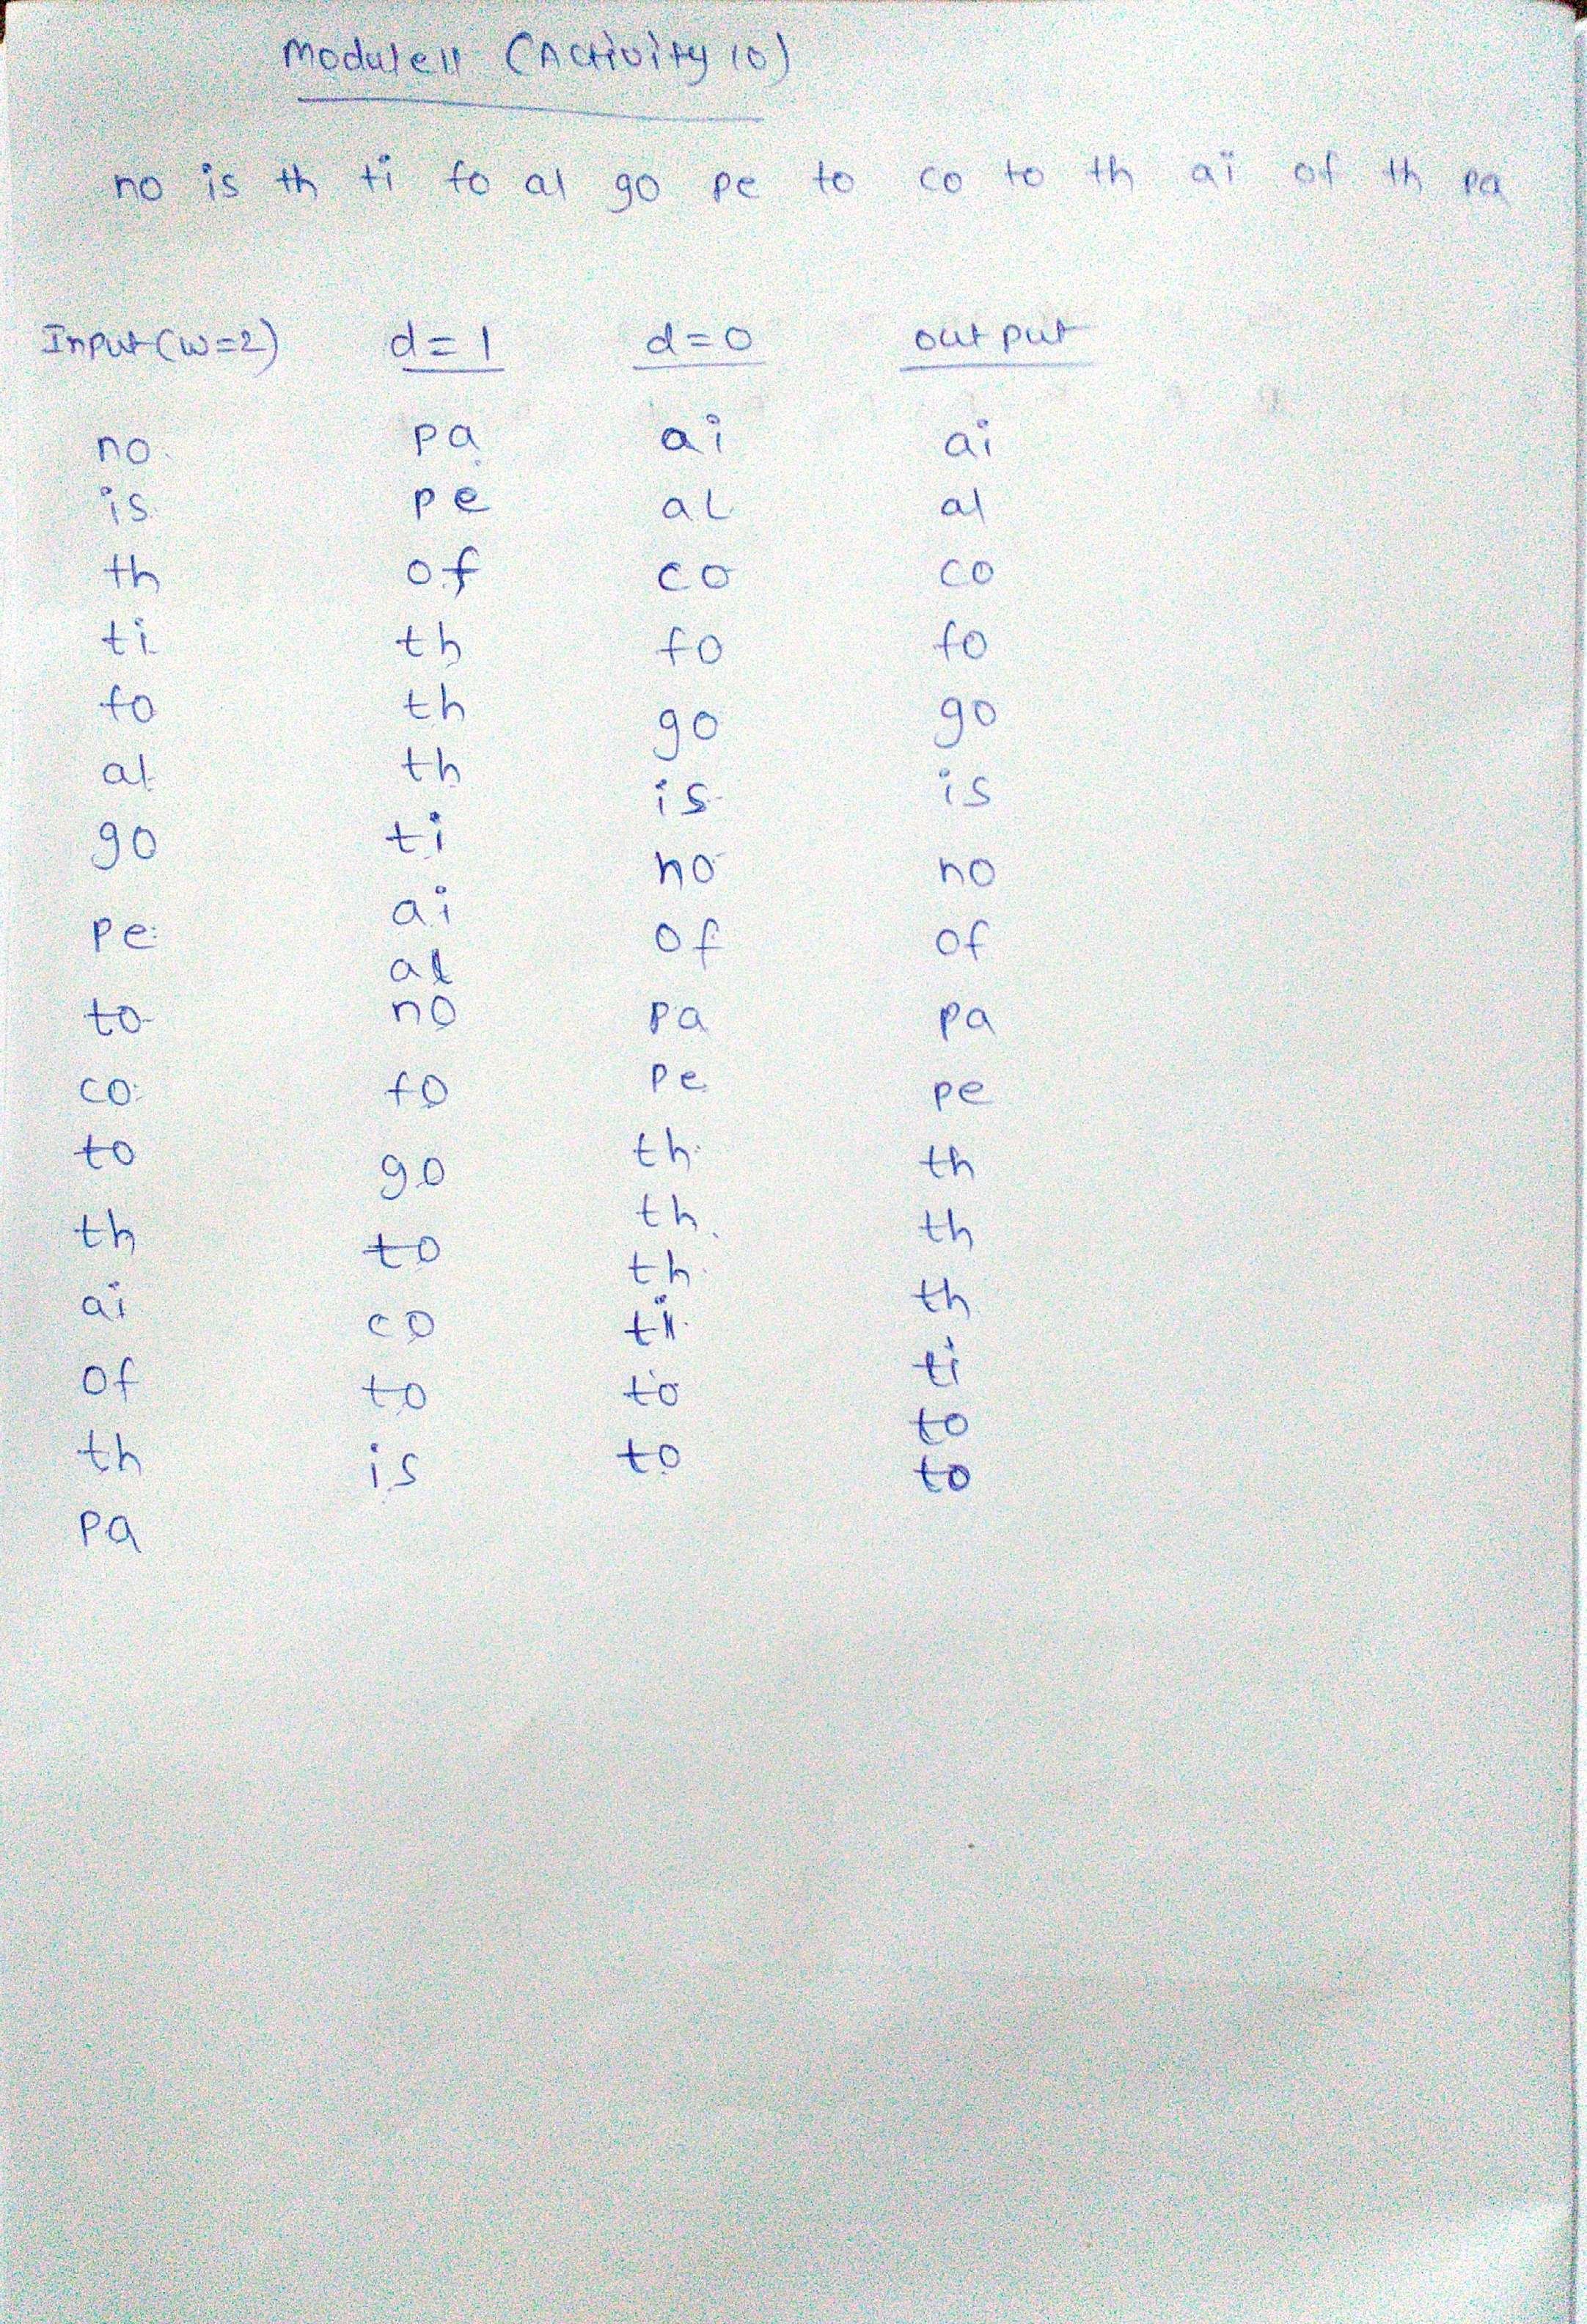 Module 11 (Activity 10)
no is th ti fo al go pe to co to th ai of th pa
Input (w=2) d=1 d=0 output
no pa ai ai
is pe al al
th of co co
ti th fo fo
fo th go go
al th is is
go ti no no
pe ai of of
to al pa pa
co no pe pe
to fo th th
th go th th
ai to th th
of co ti ti
th to to to
pa is to to